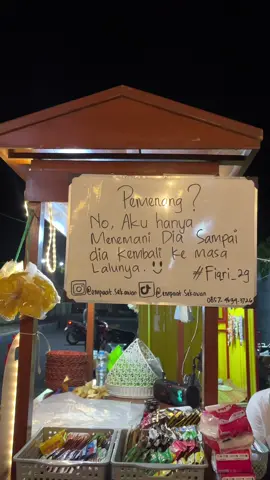 Pemenang?
No, Aku hanya
Menemani Dia Sampai
dia Kembali ke masa
Lalunya.
#Fiqri_29
@empaat_Sekawan
@empaat_Sekawan